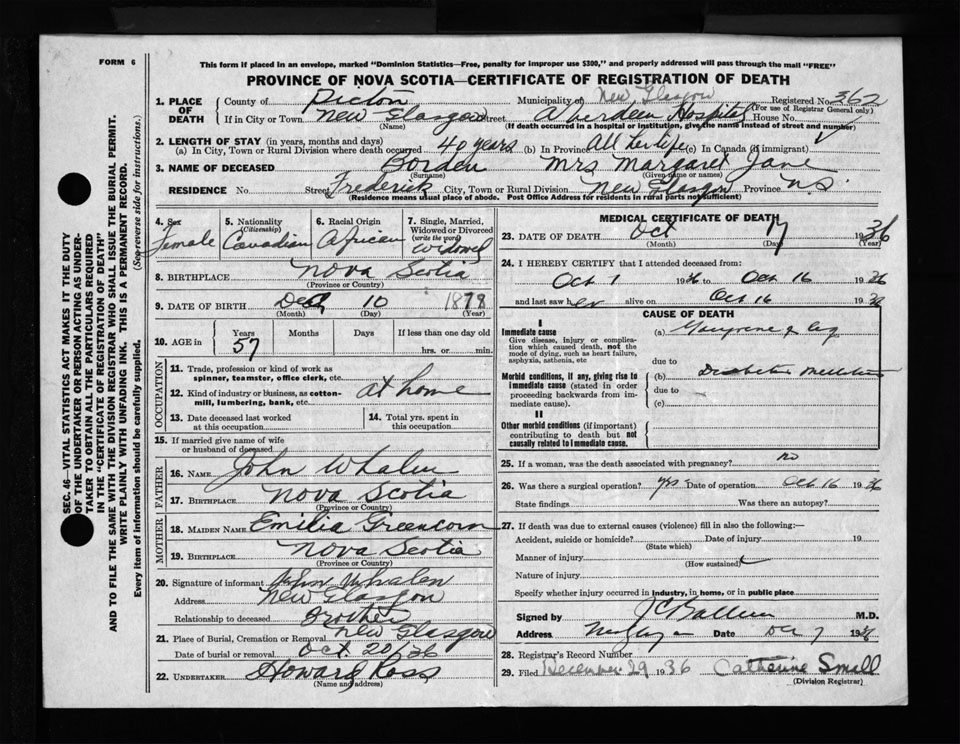 FORM 6
This form if placed in an envelope, marked "Dominion Statistics—Free, penalty for improper use $300," and properly addressed will pass through the mail "FREE"
PROVINCE OF NOVA SCOTIA—CERTIFICATE OF REGISTRATION OF DEATH
1. PLACE OF DEATH County of Pictou Municipality of New Glasgow Registered No. 362
(For use of Registrar General only)
If in City or Town New Glasgow Street Aberdeen Hospital House No.
(Name) (If death occurred in a hospital or institution, give the name instead of street and number)
2. LENGTH OF STAY (in years, months and days)
(a) In City, Town or Rural Division where death occurred 40 years (b) In Province All her life (c) In Canada (if immigrant)
3. NAME OF DECEASED Borden Mrs Margaret Jane
(Surname) (Given name or names)
RESIDENCE No. Street Frederick City, Town or Rural Division New Glasgow Province N.S.
(Residence means usual place of abode. Post Office Address for residents in rural parts not sufficient)
4. Sex Female
5. Nationality (Citizenship) Canadian
6. Racial Origin African
7. Single, Married, Widowed or Divorced (write the word) Widowed
8. BIRTHPLACE Nova Scotia
(Province or Country)
9. DATE OF BIRTH Dec 10 1878
(Month) (Day) (Year)
10. AGE in Years 57 Months Days If less than one day old hrs. or min.
OCCUPATION
11. Trade, profession or kind of work as spinner, teamster, office clerk, etc.
12. Kind of industry or business, as cotton-mill, lumbering, bank, etc. at home
13. Date deceased last worked at this occupation
14. Total yrs. spent in this occupation
15. If married give name of wife or husband of deceased
FATHER
16. NAME John Whalen
17. BIRTHPLACE Nova Scotia
(Province or Country)
MOTHER
18. MAIDEN NAME Emilia Greencorn
19. BIRTHPLACE Nova Scotia
(Province or Country)
20. Signature of informant John Whalen
Address New Glasgow
Relationship to deceased Brother
21. Place of Burial, Cremation or Removal New Glasgow
Date of burial or removal Oct. 20/36
22. UNDERTAKER Howard Ross
(Name and address)
MEDICAL CERTIFICATE OF DEATH
23. DATE OF DEATH Oct 17 1936
(Month) (Day) (Year)
24. I HEREBY CERTIFY that I attended deceased from:
Oct 1 1936 to Oct 16 1936
and last saw her alive on Oct 16 1936
CAUSE OF DEATH
I
Immediate cause
Give disease, injury or complication which caused death, not the mode of dying, such as heart failure, asphyxia, asthenia, etc
(a) Gangrene of leg
due to
Morbid conditions, if any, giving rise to immediate cause (stated in order proceeding backwards from immediate cause).
(b) Diabetes Mellitus
due to
(c)
II
Other morbid conditions (if important) contributing to death but not causally related to immediate cause.
25. If a woman, was the death associated with pregnancy? no
26. Was there a surgical operation? yes Date of operation Oct 16 1936
State findings Was there an autopsy?
27. If death was due to external causes (violence) fill in also the following:—
Accident, suicide or homicide? Date of injury 19
(State which)
Manner of injury
(How sustained)
Nature of injury
Specify whether injury occurred in industry, in home, or in public place
Signed by M.D.
Address Date Dec 7 1936
28. Registrar's Record Number
29. Filed December 29 1936 Catherine Small
(Division Registrar)
SEC. 46—VITAL STATISTICS ACT MAKES IT THE DUTY
OF THE UNDERTAKER OR PERSON ACTING AS UNDER-
TAKER TO OBTAIN ALL THE PARTICULARS REQUIRED
IN THE "CERTIFICATE OF REGISTRATION OF DEATH"
AND TO FILE THE SAME WITH THE DIVISION REGISTRAR WHO SHALL ISSUE THE BURIAL PERMIT.
WRITE PLAINLY WITH UNFADING INK. THIS IS A PERMANENT RECORD.
Every item of information should be carefully supplied. (See reverse side for instructions.)